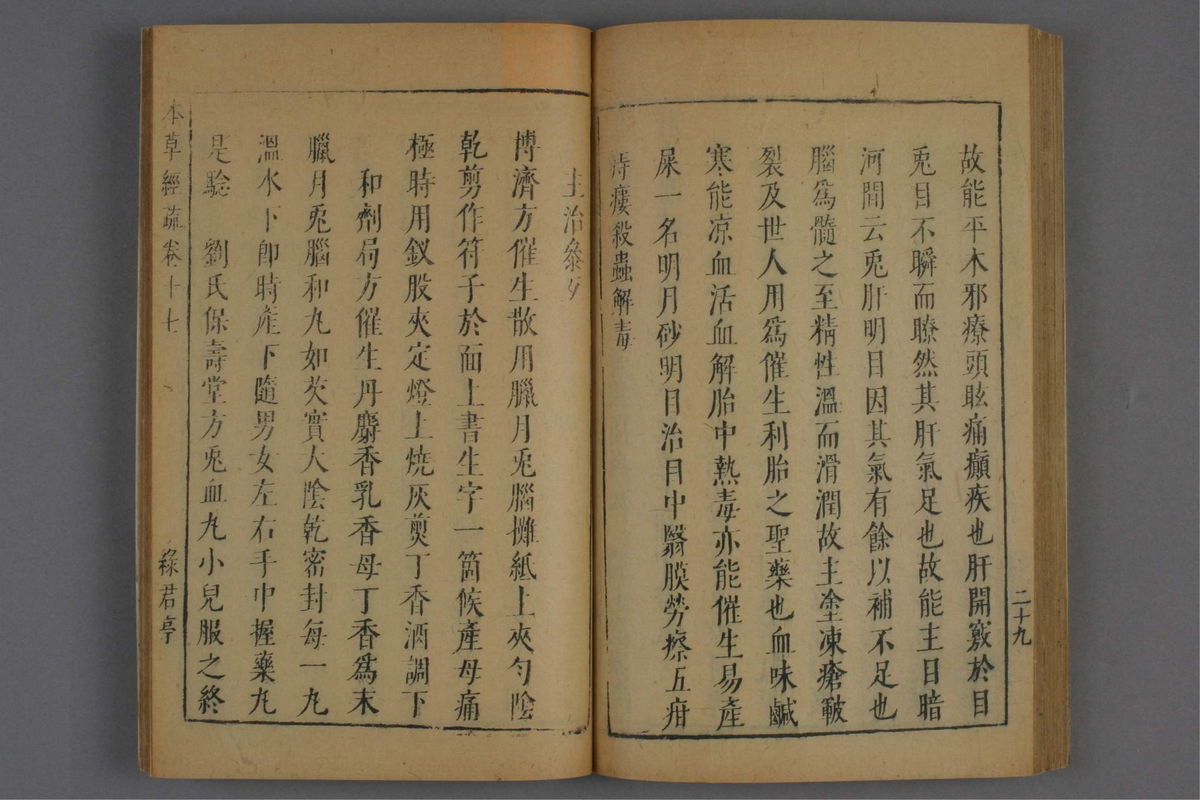 故能平木邪療頭眩痛癲疾也肝開竅於目
兎目不瞬而瞭然其肝氣足也故能主目暗
河間云兎肝明目因其氣有餘以補不足也
腦爲髓之至精性溫而滑潤故主塗凍瘡皸
裂及世人用爲催生利胎之聖藥也血味鹹
寒能凉血活血解胎中熱毒亦能催生易產
屎一名明月砂明目治目中翳膜勞瘵五疳
痔瘻殺蟲解毒
二十九
主治參互
博濟方催生散用臘月兎腦攤紙上夾勻陰
乾剪作符子於面上書生字一箇候產母痛
極時用釵股夾定燈上燒灰煎丁香酒調下
和劑局方催生丹麝香乳香母丁香爲末
臘月兎腦和丸如芡實大陰乾密封每一丸
溫水下卽時產下隨男女左右手中握藥丸
是驗 劉氏保壽堂方兎血丸小兒服之終
本草經疏卷十七 綠君亭